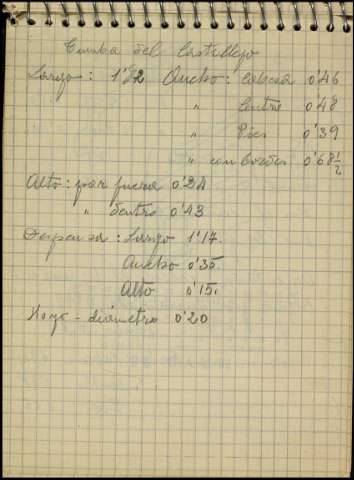 Tumba del Castillejo
Largo: 1'72 Ancho: cabeza 0'46
" Centro 0'48
" Pies 0'39
" con bordes 0'68½
Alto: por fuera 0'24
" dentro 0'43
Despensa: Largo 1'17.
Ancho 0'35.
Alto 0'15.
Hoyo - diámetro 0'20